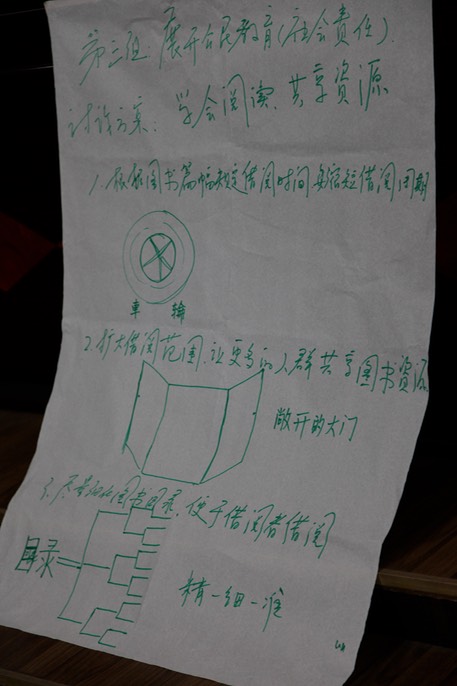 第三组：展开公民教育(社会责任).
讨论方案：学会阅读、共享资源
1. 根据图书篇幅规定借阅时间,缩短借阅周期
車 輪
2.扩大借阅范围.让更多的人群共享图书资源
敞开的大门
3.尽量细化图书目录,便于借阅者借阅
目录
精一细一准